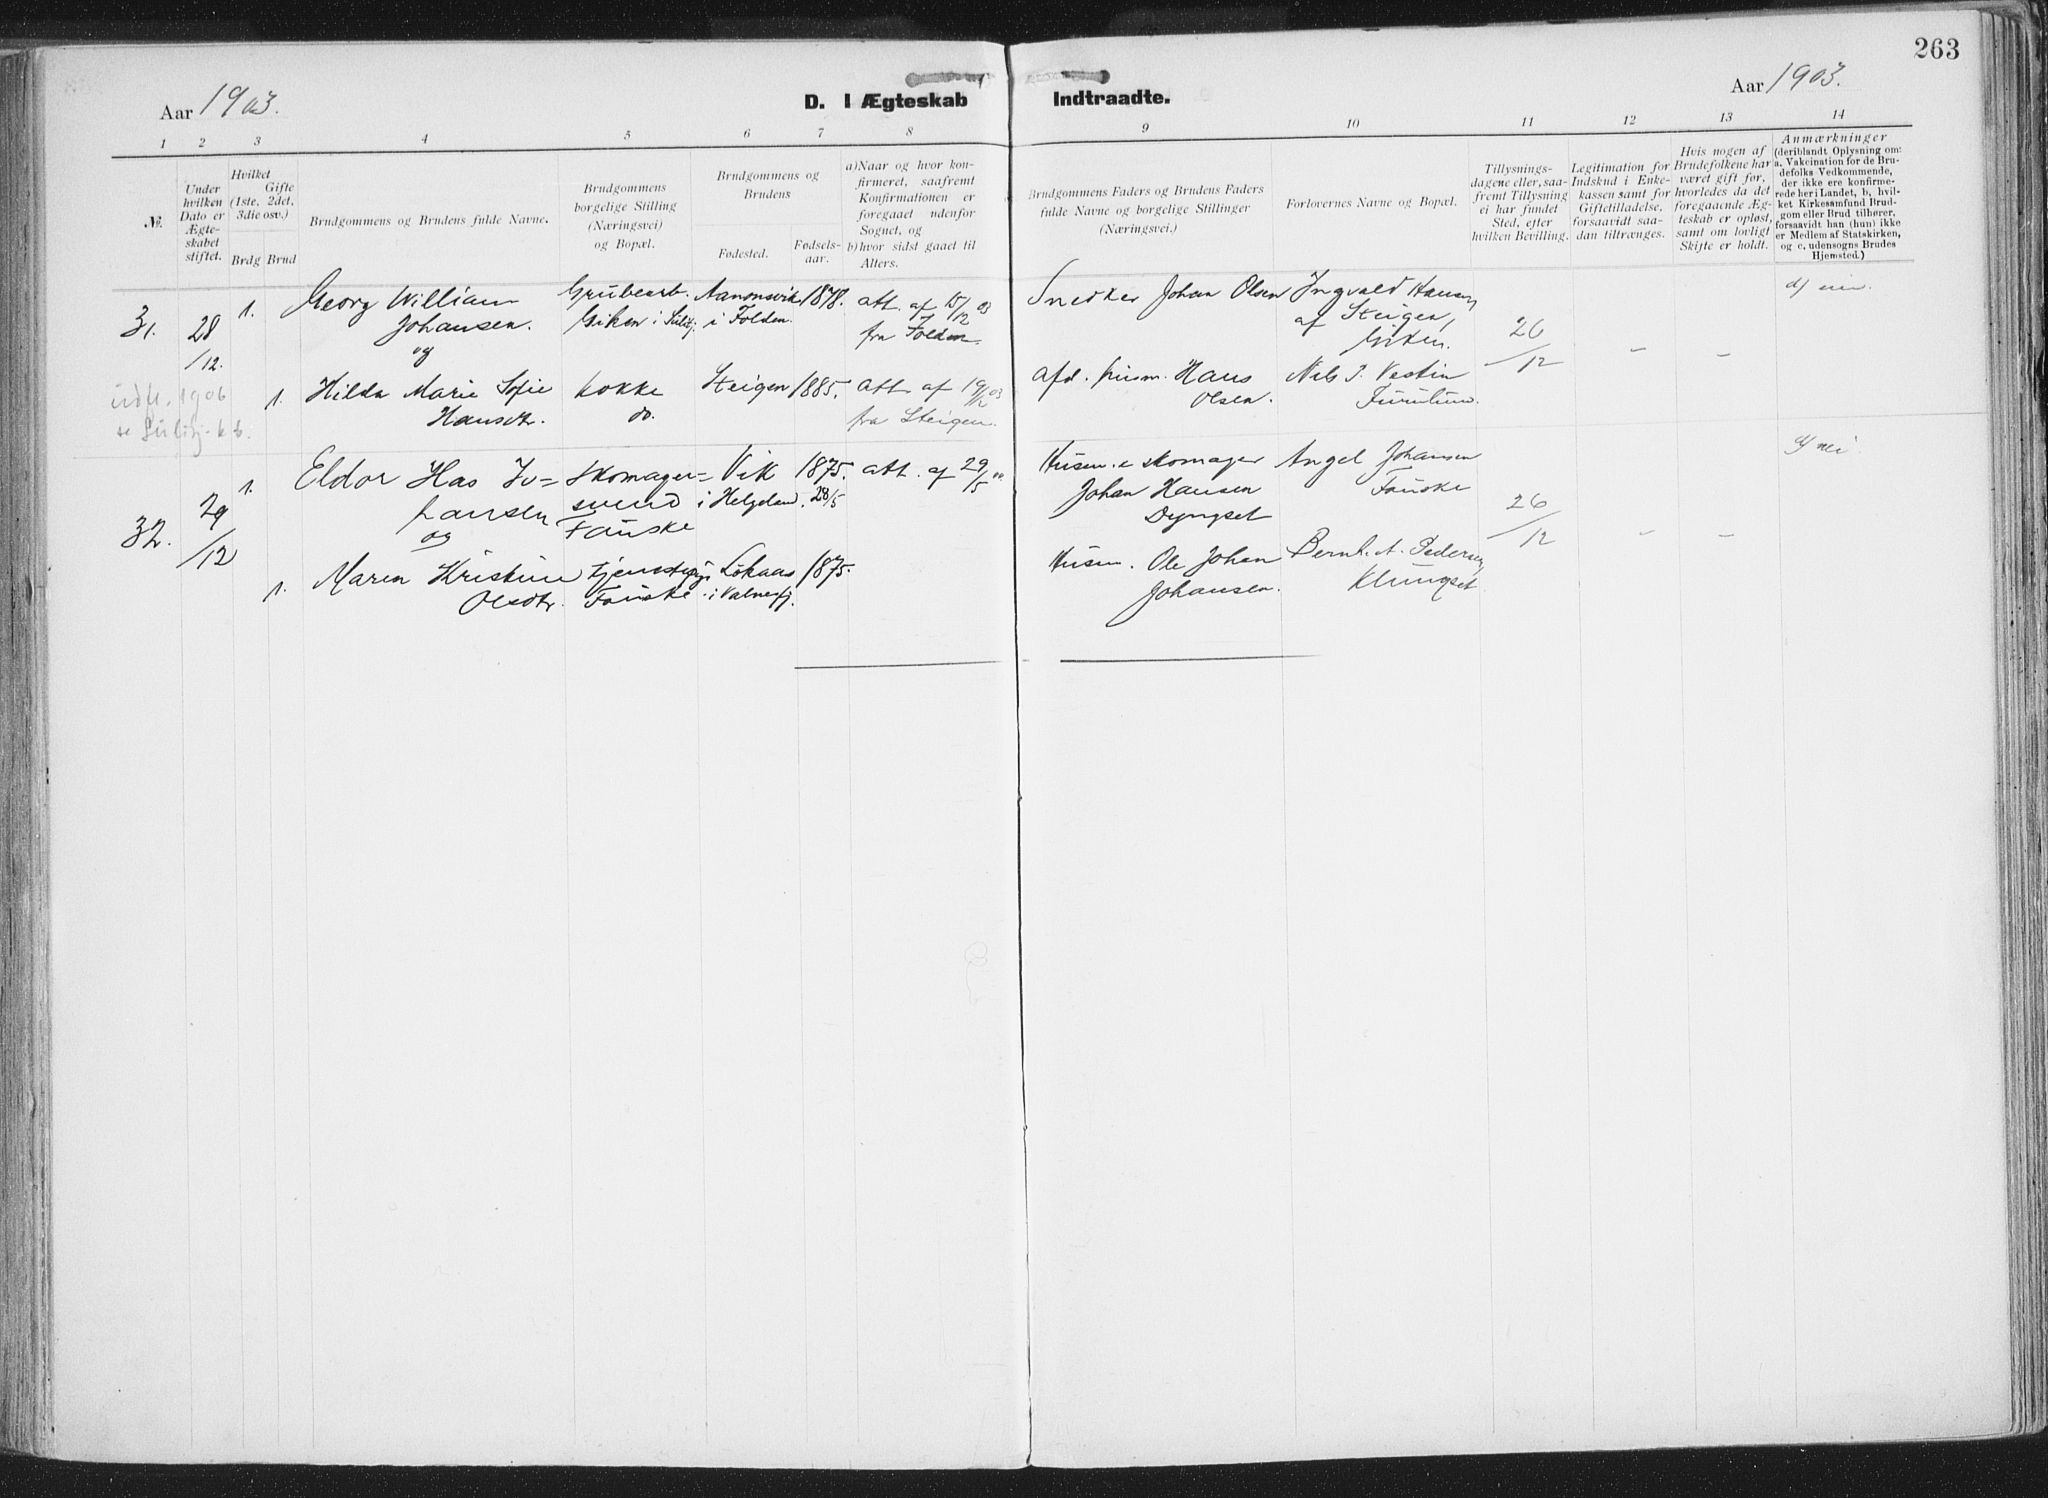 263
Aar 1903.
D. I Ægteskab Indtraadte.
Aar 1903.
1 2 3 4 5 6 7 8 9 10 11 12 13 14
№.
Under
hvilken
Dato er
Ægte-
skabet
stiftet.
Hvilket
Gifte
(1ste, 2det,
3die osv.)
Brdg Brud
Brudgommens og Brudens fulde Navne.
Brudgommens
borgelige Stilling
(Næringsvei)
og Bopæl.
Brudgommens og
Brudens
Fødested.
Fødsels-
aar.
a) Naar og hvor kon-
firmeret, saafremt
Konfirmationen er
foregaaet udenfor
Sognet, og
b) hvor sidst gaaet til
Alters.
Brudgommens Faders og Brudens Faders
fulde Navne og borgelige Stillinger
(Næringsvei.)
Forlovernes Navne og Bopæl.
Tillysnings-
dagene eller, saa-
fremt Tillysning
ei har fundet
Sted, efter
hvilken Bevilling.
Legitimation for
Indskud i Enke-
kassen samt for
Giftetilladelse,
forsaavidt saa-
dan tiltrænges.
Hvis nogen af
Brudefolkene har
været gift før,
hvorledes da det
foregaaende Æg-
teskab er opløst,
samt om lovligt
Skifte er holdt.
Anmærkninger
(deriblandt Oplysning om:
a. Vakcination for de Bru-
defolks Vedkommende,
der ikke ere konfirme-
rede her i Landet, b, hvil-
ket Kirkesamfund Brud-
gom eller Brud tilhører,
forsaavidt han (hun) ikke
er Medlem af Statskirken,
og c, udensogns Brudes
Hjemsted.)
31.
28
/12.
1.
Georg William
Johansen.
og
Grubearb.
Giken i Sulitj.
Aanonsvik
i Folden.
1878.
att. af 15/12 03
fra Folden.
Snedker Johan Olsen
Ingvald Hansen
af Steigen,
Giken.
26
/12
-
-
udfl. 1906
se Sulitj. kb.
1.
Hilda Marie Sofie
Hansdtr.
kokke
do.
Steigen
1885.
att. af 19/12 03
fra Steigen.
afd. husm. Hans
Olsen.
Nels P. Vestin
Furulund.
32.
29
/12
1.
Eldor Has Jo=
hansen
og
Skomager=
svend
Fauske
Vik
i Helgeland.
1875.
28/5
att. af 29/5
Husm. & skomager
Johan Hansen
Angel Johansen
Fauske
26
/12
-
-
nei
1.
Maren Kristine
Olsdtr.
tjenstepige
Fauske
Løkaas
i Valnesfj.
1875.
Husm. Ole Johan
Johansen.
Bernh. A. Pedersen,
Klungset.